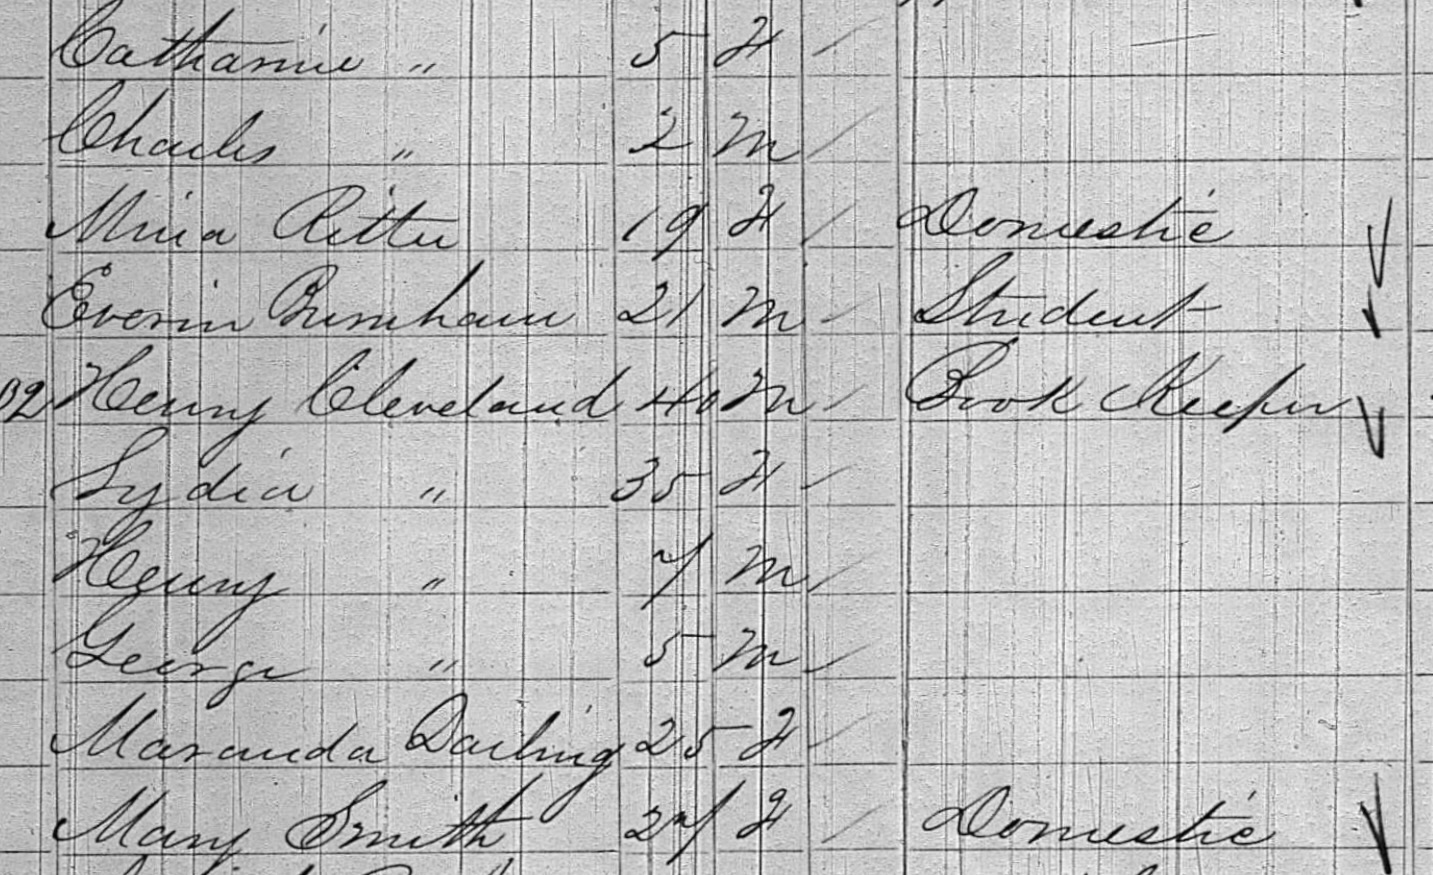 Catharine " 5 F /
Charles " 2 M /
Mina Ritter 19 F / Domestic
Burnham 21 M / Student
Henry Cleveland 40 M / Book Keeper
Lydia " 35 F /
Henry " 7 M /
George " 5 M /
Maranda Darling 25 F /
Mary Smith 27 F / Domestic